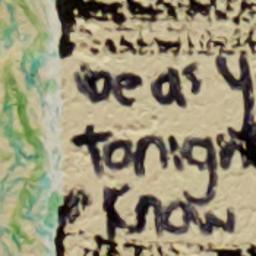 be as y
tonigh
know